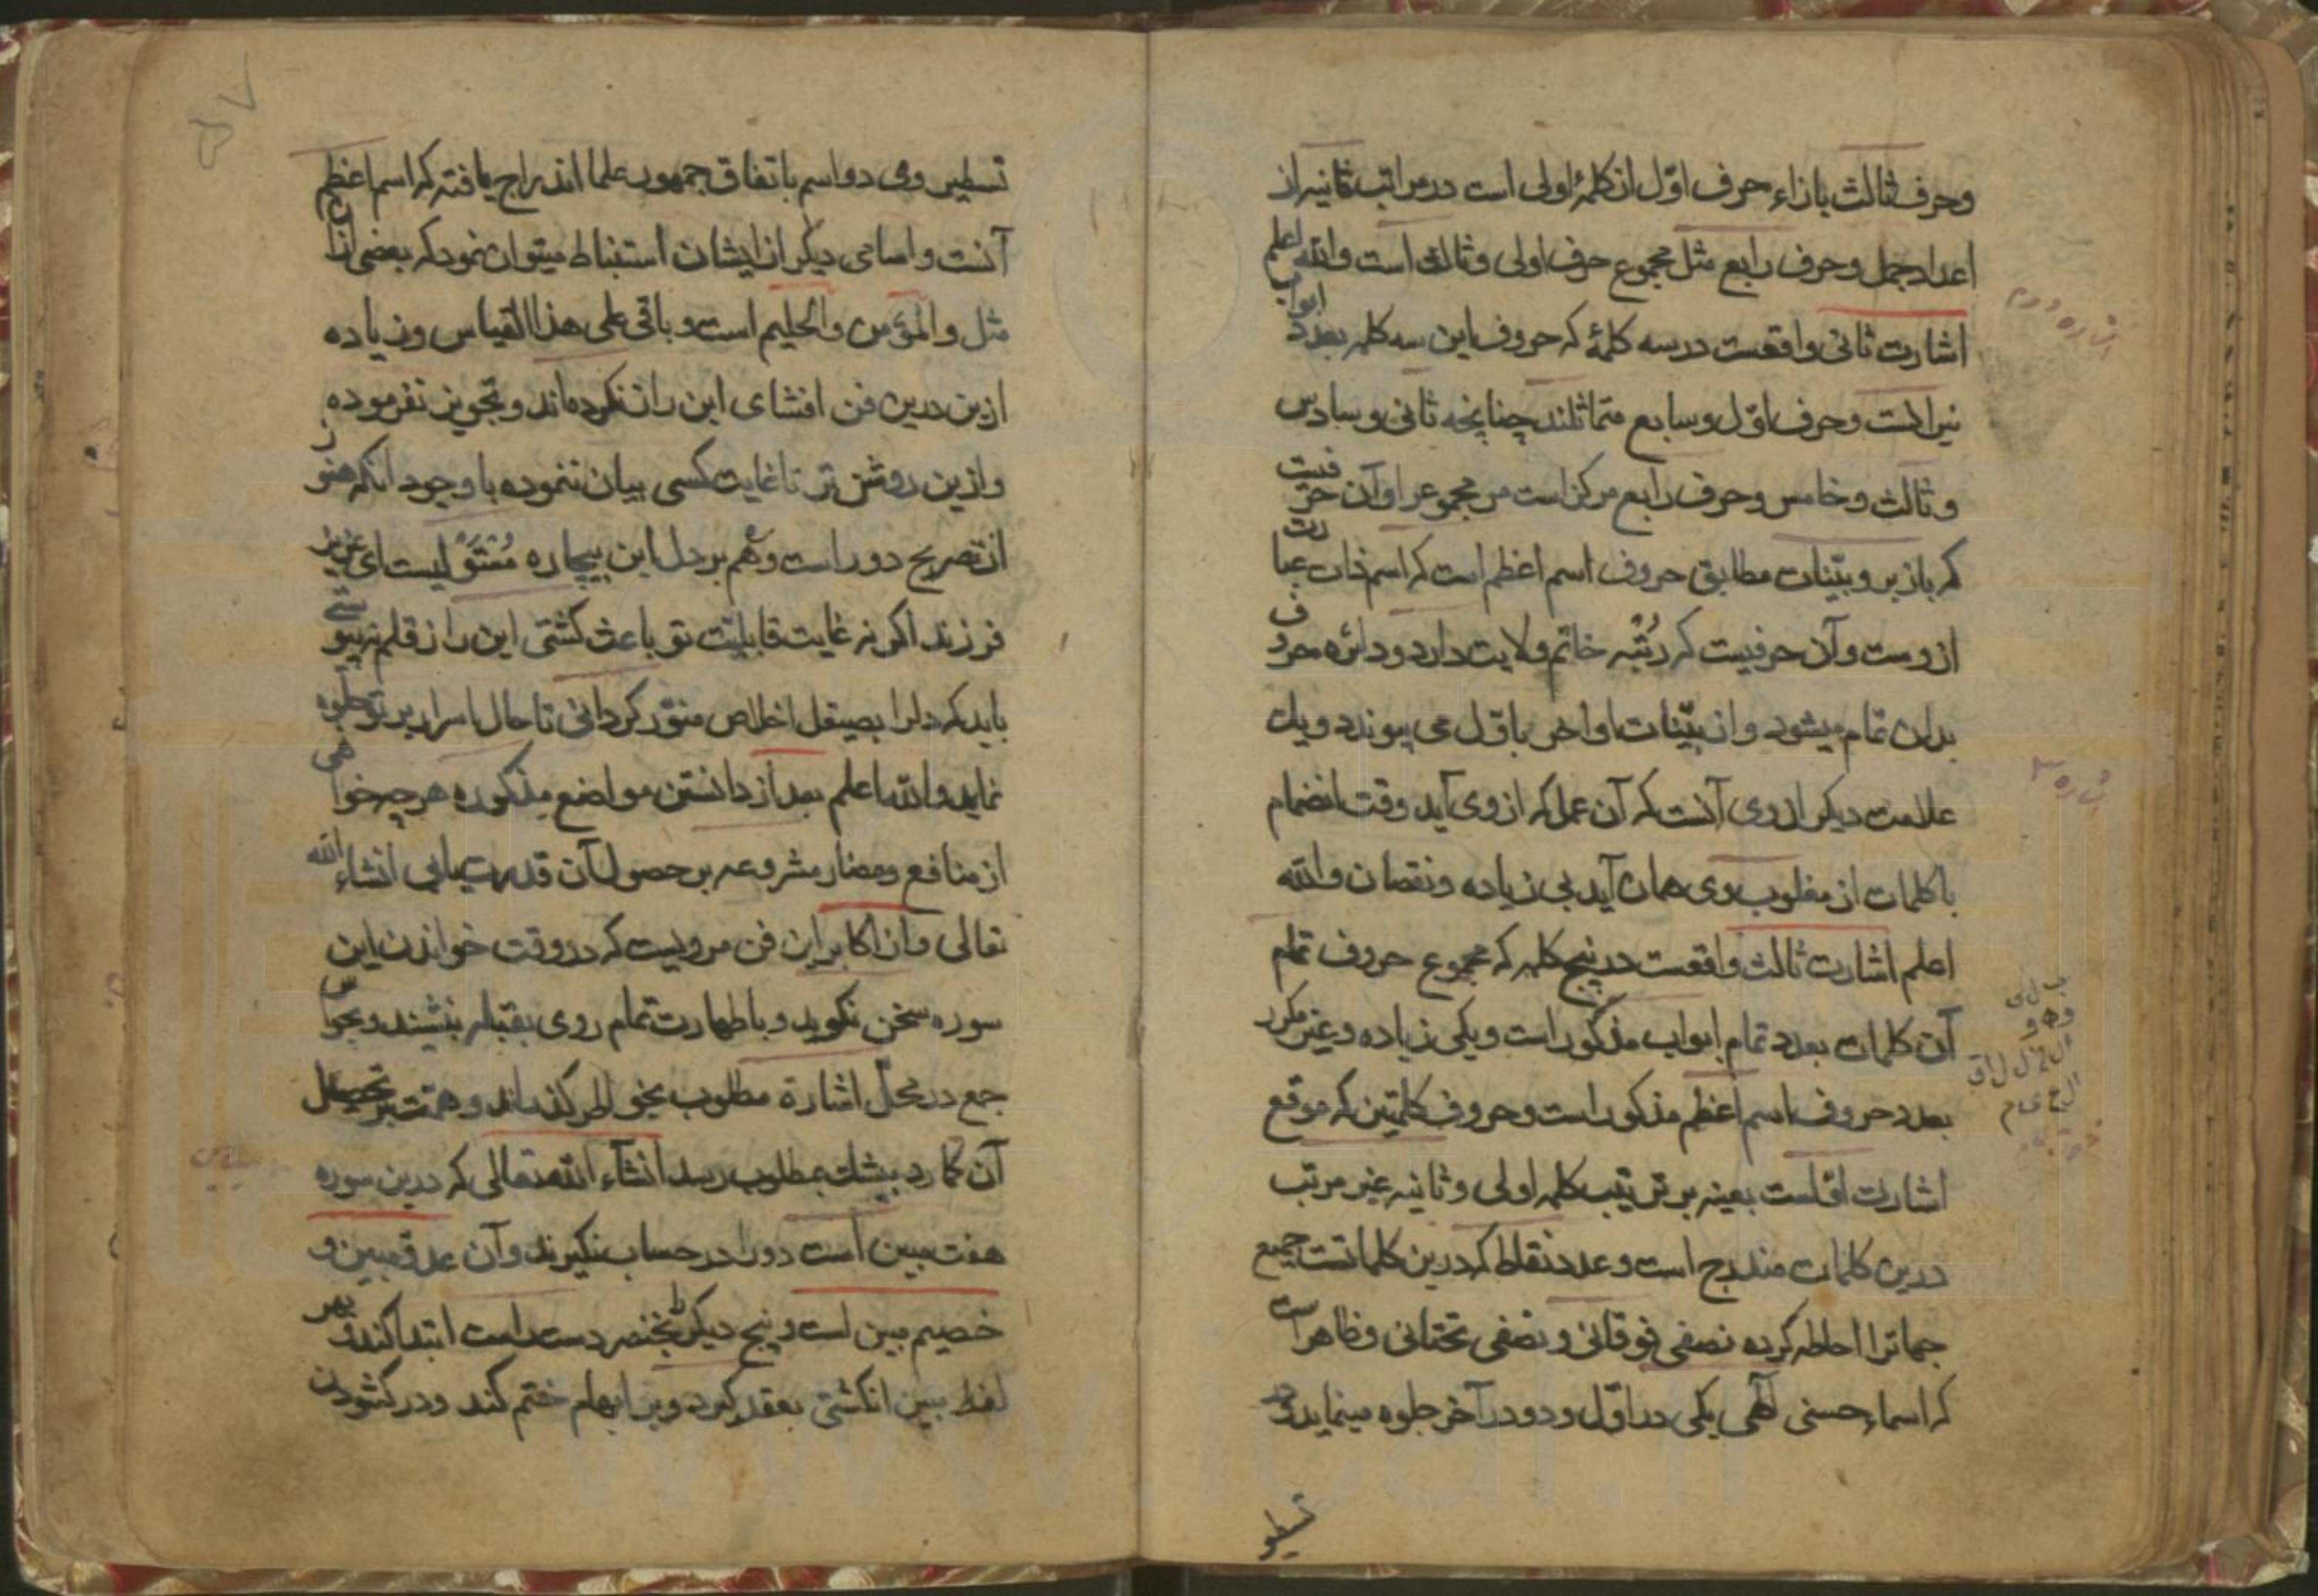 وحرف ثالث بازاء حرف اوّل از کلمهٔ اولی است در مراتب ثانیه از
اعداد جمل وحرف رابع مثل مجموع حرف اولی وثالث است والله اعلم
اشارت ثانی واقعست در سه کلمهٔ که حروف این سه کلمه بعدد ابواب
نیرانست وحرف اوّل وسابع متماثلند چنانچه ثانی وسادس
وثالث وخامس وحرف رابع مرکز است مر مجموع را وآن حرفیست
که باز بر وبیّنات مطابق حروف اسم اعظم است که اسم ذات عبارت
ازوست وآن حرفیست که رُتبه خاتم ولایت دارد ودائره حروف
بدان تمام میشود واز بیّنات اواخر باوّل می پیوندد ویك
علامت دیکر از وی آنست که آن عمل که از وی آید وقت انضمام
با کلمات از مغلوب وی همان آید بی زیاده ونقصان والله
اعلم اشارت ثالث واقعست در پنج کلمه که مجموع حروف تمام
آن کلمات بعدد تمام ابواب مذکور است ویکی زیاده وغیر مکرر
بعدد حروف اسم اعظم مذکور است وحروف کلمتین که موقع
اشارت اوّلست بعینه بر ترتیب کلمه اولی وثانیه غیر مرتب
درین کلمات مندرج است وعدد نقاط که درین کلماتست جمیع
جهاترا احاطه کرده نصفی فوقانی ونصفی تحتانی وظاهر است
که اسماء حسنی آلهی یکی در اوّل ودو در آخر جلوه مینماید
تسطیر وی دو اسم باتفاق جمهور علما اندراج یافته که اسم اعظم
آنست واسامی دیکر از ایشان استنباط میتوان نمود که بعضی ازان
مثل والمؤمن والحلیم است وباقی علی هذا القیاس وزیاده
ازین درین فن افشای این راز نکرده اند وتجویز نفرموده
وازین روشن تر تا غایت کسی بیان ننموده با وجود انکه هنوز
از تصریح دور است وهم بر دل این بیچاره ای عزیز
فرزند اکر نه غایت قابلیّت تو باعث کشتی این راز قلم
باید که دلرا بصیقل اخلاص منوّر کردانی تا حال اسرار بر تو جلوه
نماید والله اعلم بعد از دانستن مواضع مذکوره هر چه خواهی
از منافع ومضار مشروعه بر حصول آن قدرت یابی انشاء الله
تعالی واز اکابر این فن مرویست که در وقت خواندن این
سوره سخن نکوید وبا طهارت تمام روی بقبله بنشیند وبحواس
جمع در محلّ اشارة مطلوب بخواطر کذراند وهمت بر تحصیل
آن کمارد بیشك بمطلوب رسد انشآء الله تعالی که درین سوره
هفت مبین است دو را در حساب نکیرند وآن عدو مبین و
خصیم مبین است وپنج دیکر بخنصر دست راست ابتدا کند وبهر
لفظ مبین انکشتی بعقد کیرد وبر ابهام ختم کند ودر کشودن